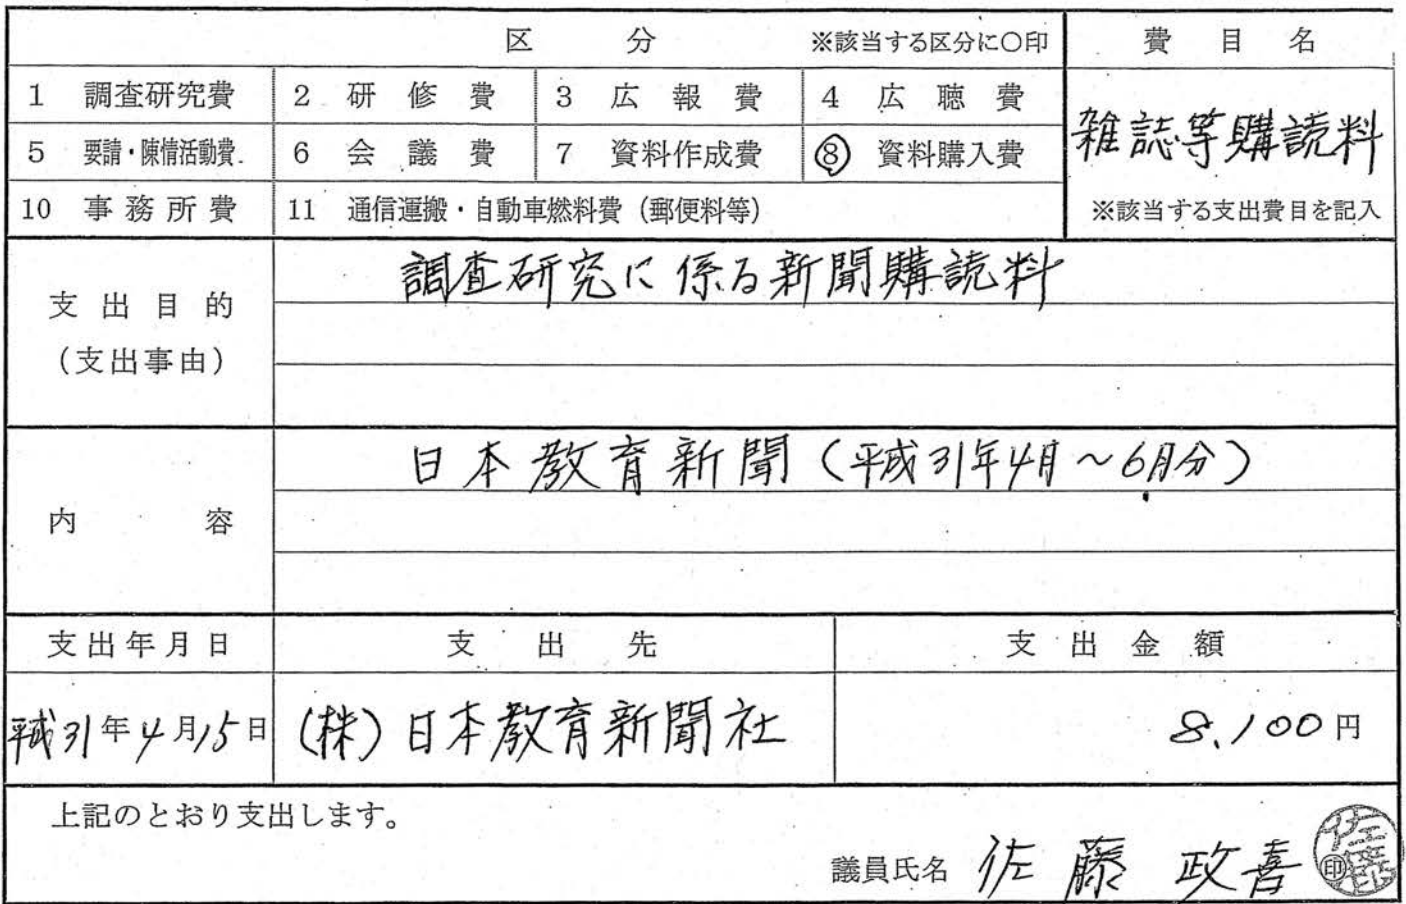 区 分 ※該当する区分に○印 費 目 名
1 調査研究費 2 研 修 費 3 広 報 費 4 広 聴 費
雑誌等購読料
5 要請・陳情活動費 6 会 議 費 7 資料作成費 ⑧ 資料購入費
10 事務所費 11 通信運搬・自動車燃料費（郵便料等） ※該当する支出費目を記入
調査研究に係る新聞購読料
支 出 目 的
（支出事由）
日本教育新聞（平成31年4月～6月分）
内 容
支出年月日 支 出 先 支 出 金 額
平成31年4月15日 (株)日本教育新聞社 8,100円
上記のとおり支出します。
議員氏名 佐藤 政喜 印